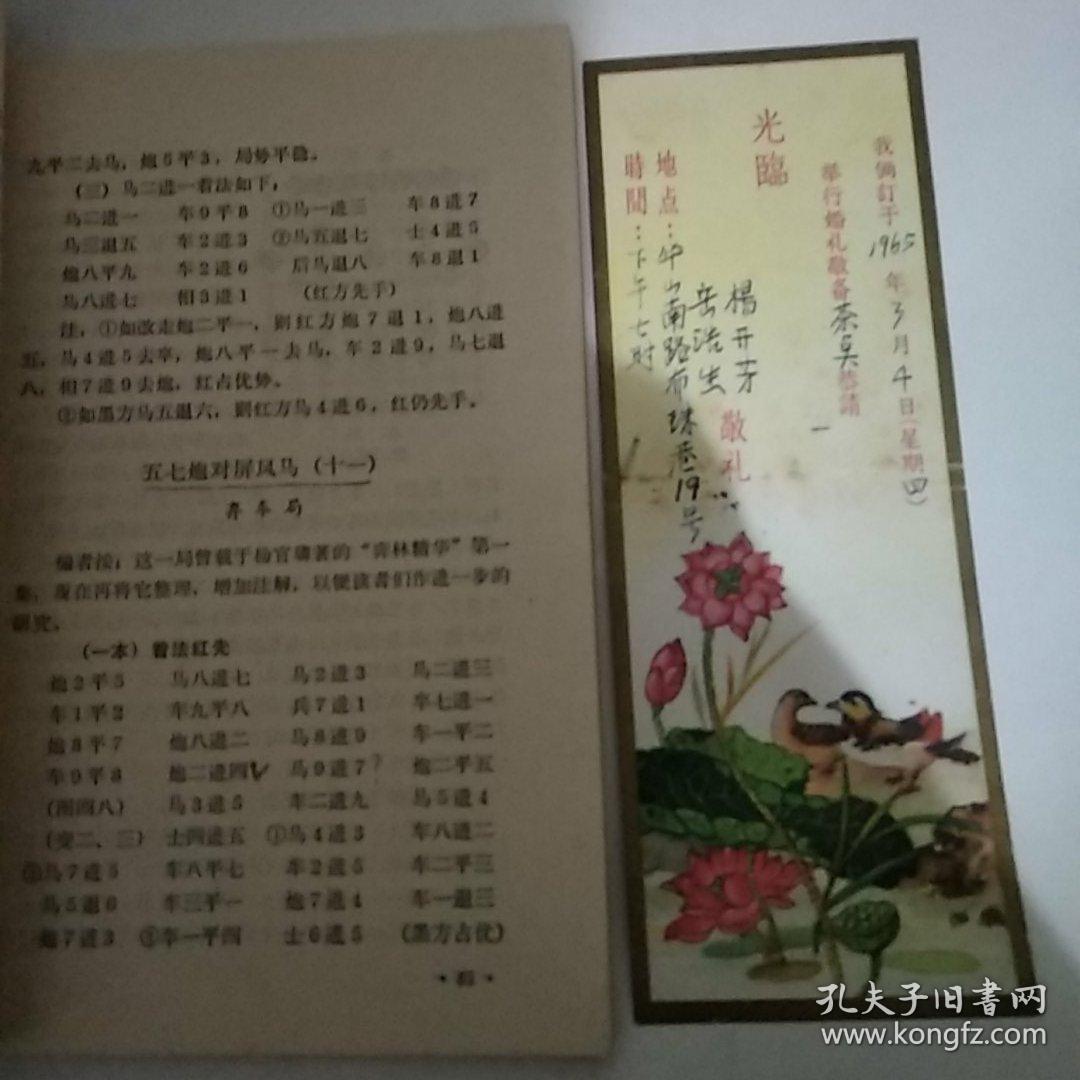 九平二去马，炮5平3，局势平稳。
（三）马二进一着法如下：
马二进一 车9平8 ①马一进三 车8进7
马三退五 车2进3 ②马五退七 士4进5
炮八平九 车2进6 后马退八 车8退1
马八进七 相3进1 （红方先手）
注：①如改走炮二平一，则红方炮7退1，炮八进
五，马4进5去卒，炮八平一去马，车2进9，马七退
八，相7进9去炮，红占优势。
②如黑方马五退六，则红方马4进6，红仍先手。
五七炮对屏风马（十一）
弃车局
编者按：这一局曾载于杨官璘著的“弈林精华”第一
集，现在再将它整理，增加注解，以便读者们作进一步的
研究。
（一本）着法红先
炮2平5 马八进七 马2进3 马二进三
车1平2 车九平八 兵7进1 卒七进一
炮8平7 炮八进二 马8进9 车一平二
车9平8 炮二进四 马9进7 炮二平五
（图四八） 马3进5 车二进九 马5进4
（变二、三） 士四进五 ①马4进3 车八进二
②马7进5 车八平七 车2进5 车二平三
马5退6 车三平一 炮7进4 车一退三
炮7进3 ③车一平四 士6进5 （黑方占优）
我倆訂于1965年3月4日（星期四）
举行婚礼敬备茶点恭請
光臨
楊开芽
岳浩生
敬礼
地点：中山南路南珠巷19号
時間：下午七时
孔夫子旧書网
www.kongfz.com